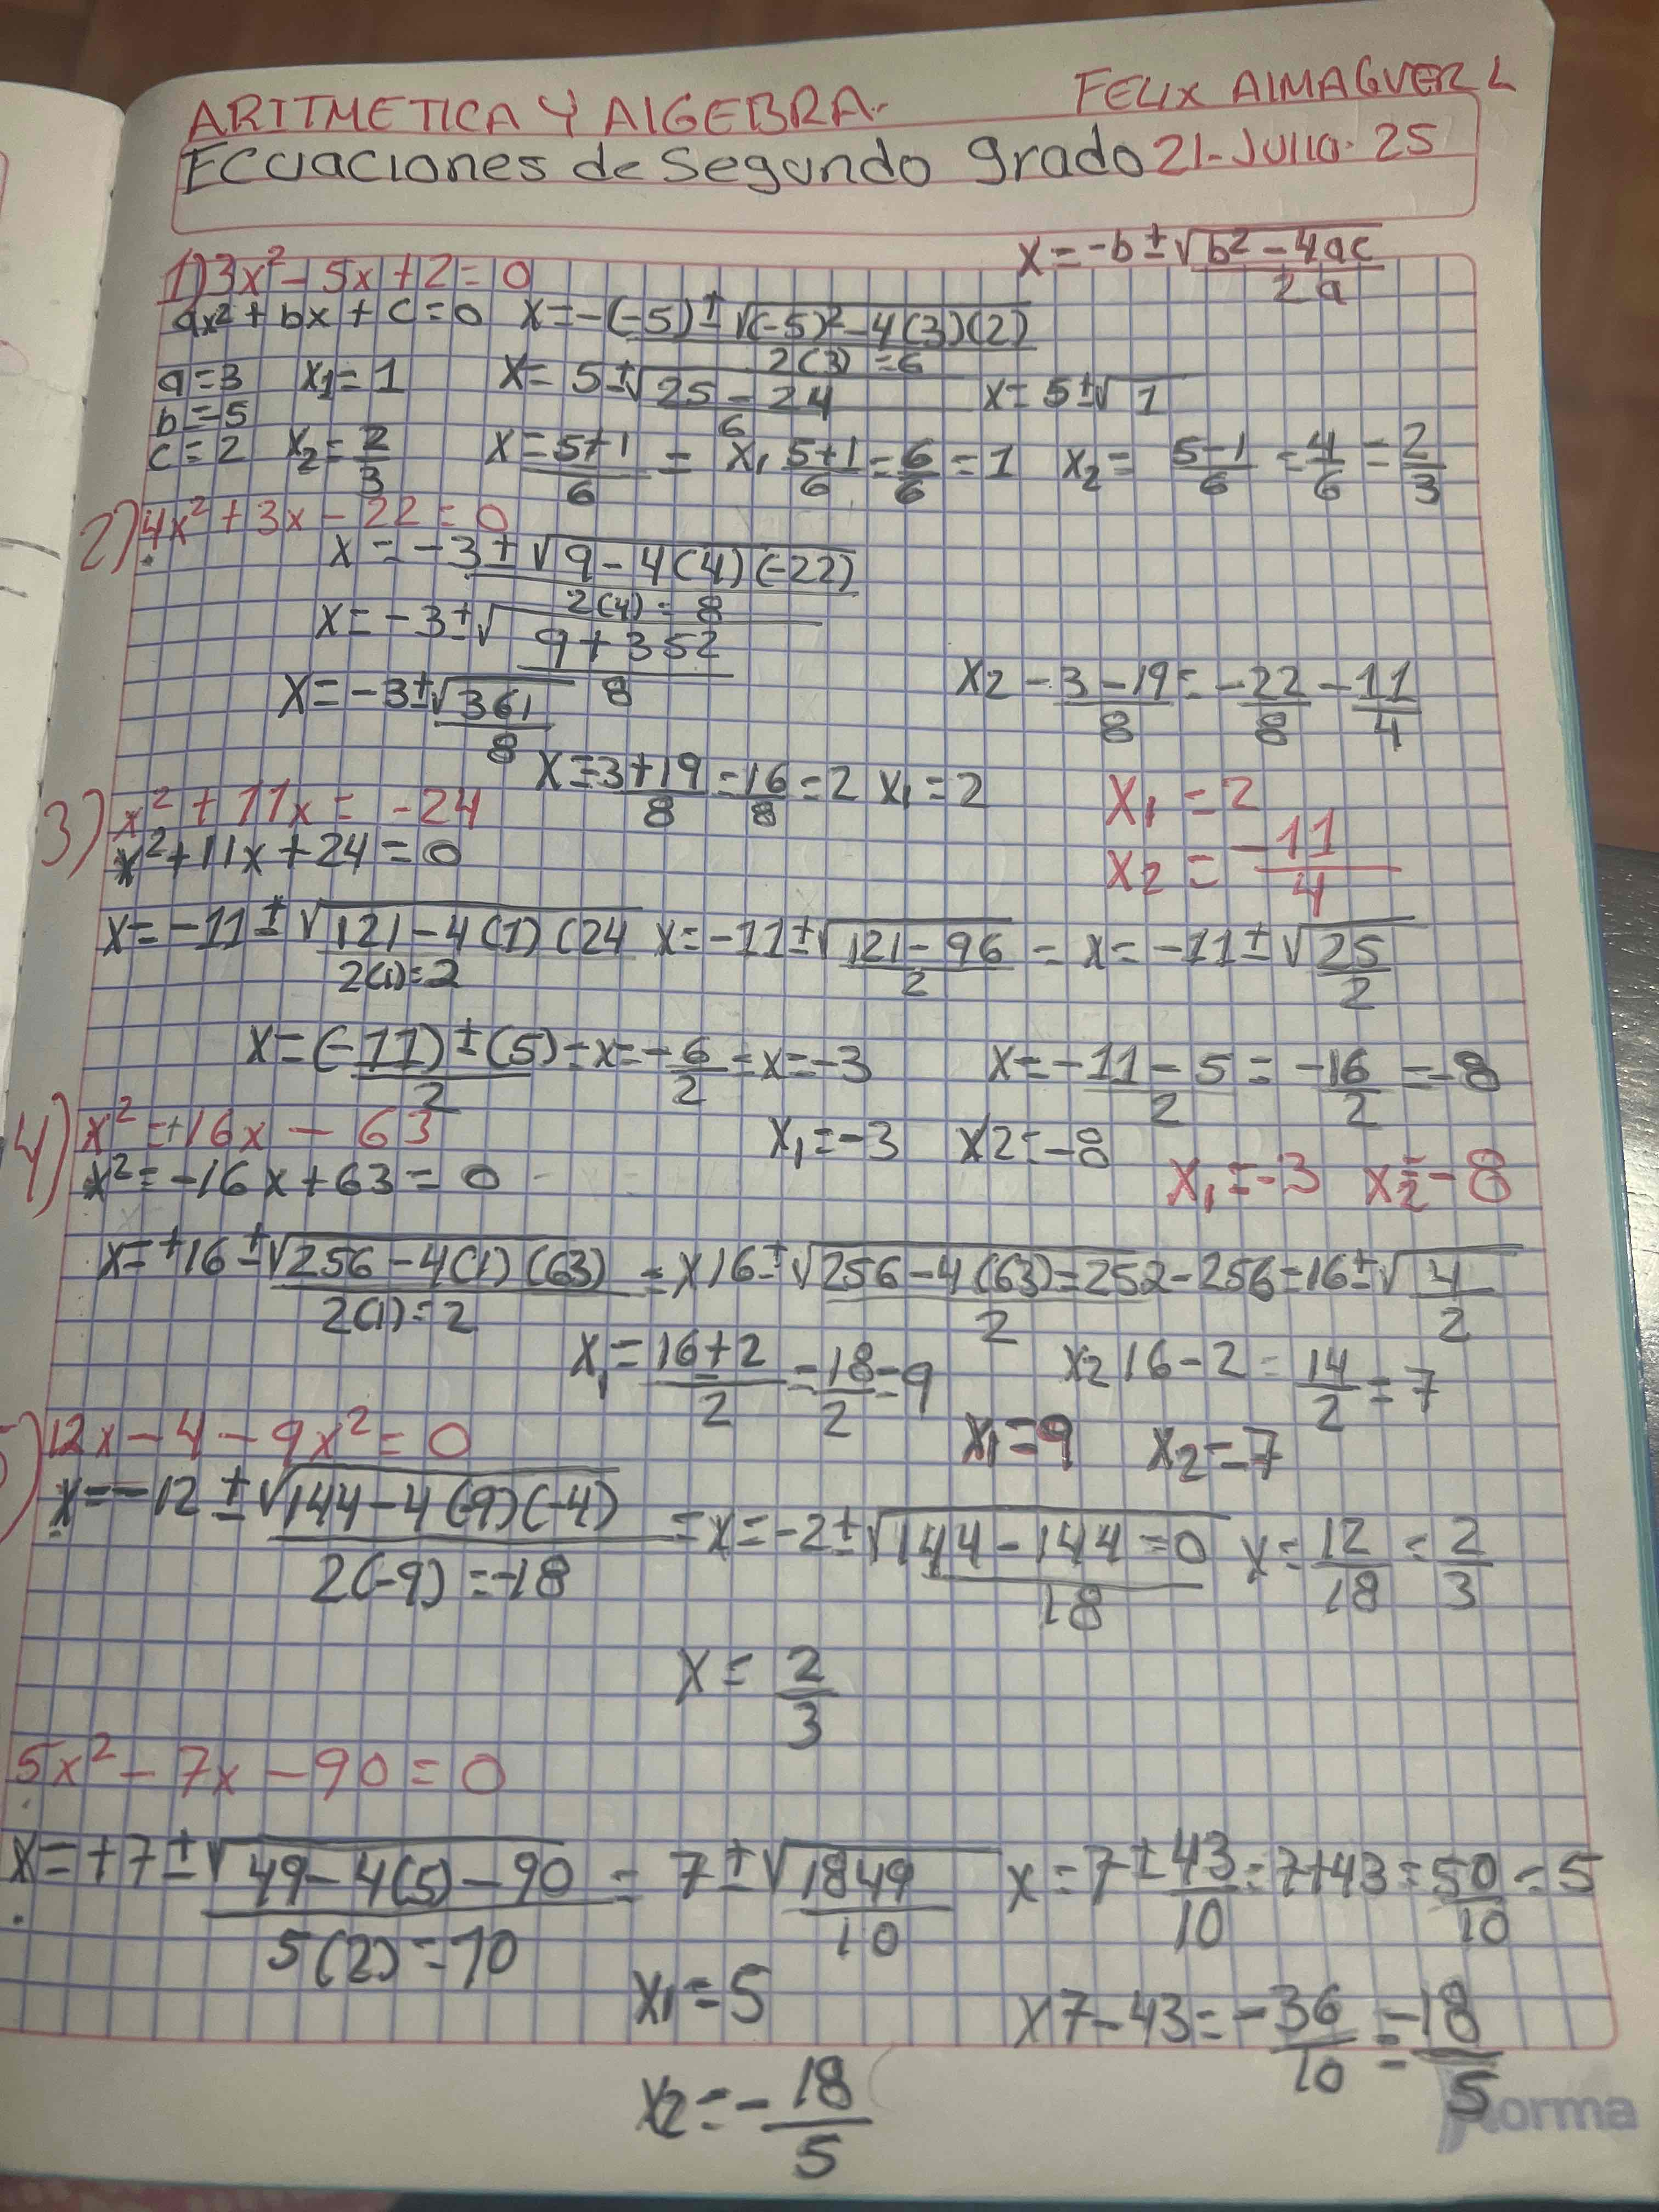 ARITMETICA Y ALGEBRA. FELIX ALMAGUER L
Ecuaciones de segundo grado 21-Julio-25
x = -b ± √b² - 4ac
2a
1) 3x² - 5x + 2 = 0
ax² + bx + c = 0 x = -(-5) ± √(-5)² - 4(3)(2)
2(3) = 6
a = 3 x₁ = 1 x = 5 ± √25 - 24 x = 5 ± √1
6
b = -5
c = 2 x₂ = 2/3 x = 5+1/6 = x₁ 5+1/6 = 6/6 = 1 x₂ = 5-1/6 = 4/6 = 2/3
2) 4x² + 3x - 22 = 0
x = -3 ± √9 - 4(4)(-22)
2(4) = 8
x = -3 ± √9 + 352
8
x = -3 ± √361 x₂ -3-19/8 = -22/8 -11/4
8
x = -3+19/8 = 16/8 = 2 x₁ = 2 x₁ = 2
x₂ = -11/4
3) x² + 11x = -24
x² + 11x + 24 = 0
x = -11 ± √121 - 4(1)(24 x = -11 ± √121 - 96 = x = -11 ± √25
2(1) = 2 2 2
x = (-11) ± (5)/2 = x = -6/2 = x = -3 x = -11-5/2 = -16/2 = -8
x₁ = -3 x2 = -8
x₁ = -3 x₂ = -8
4) x² = +16x - 63
x² = -16x + 63 = 0
x = +16 ± √256 - 4(1)(63) = x 16 ± √256 - 4(63) = 252 - 256 = 16 ± √4
2(1) = 2 2 2
x₁ = 16+2/2 = 18/2 = 9 x₂ 16 - 2 = 14/2 = 7
x₁ = 9 x₂ = 7
5) 12x - 4 - 9x² = 0
x = -12 ± √144 - 4(-9)(-4) = x = -2 ± √144 - 144 = 0 x = 12/18 = 2/3
2(-9) = -18 18
x = 2/3
5x² - 7x - 90 = 0
x = +7 ± √49 - 4(5) - 90 = 7 ± √1849 x = 7 ± 43/10 = 7+43 = 50/10 = 5
5(2) = 10 10
x₁ = 5 x 7 - 43 = -36/10 = -18/5
x₂ = -18/5
Norma